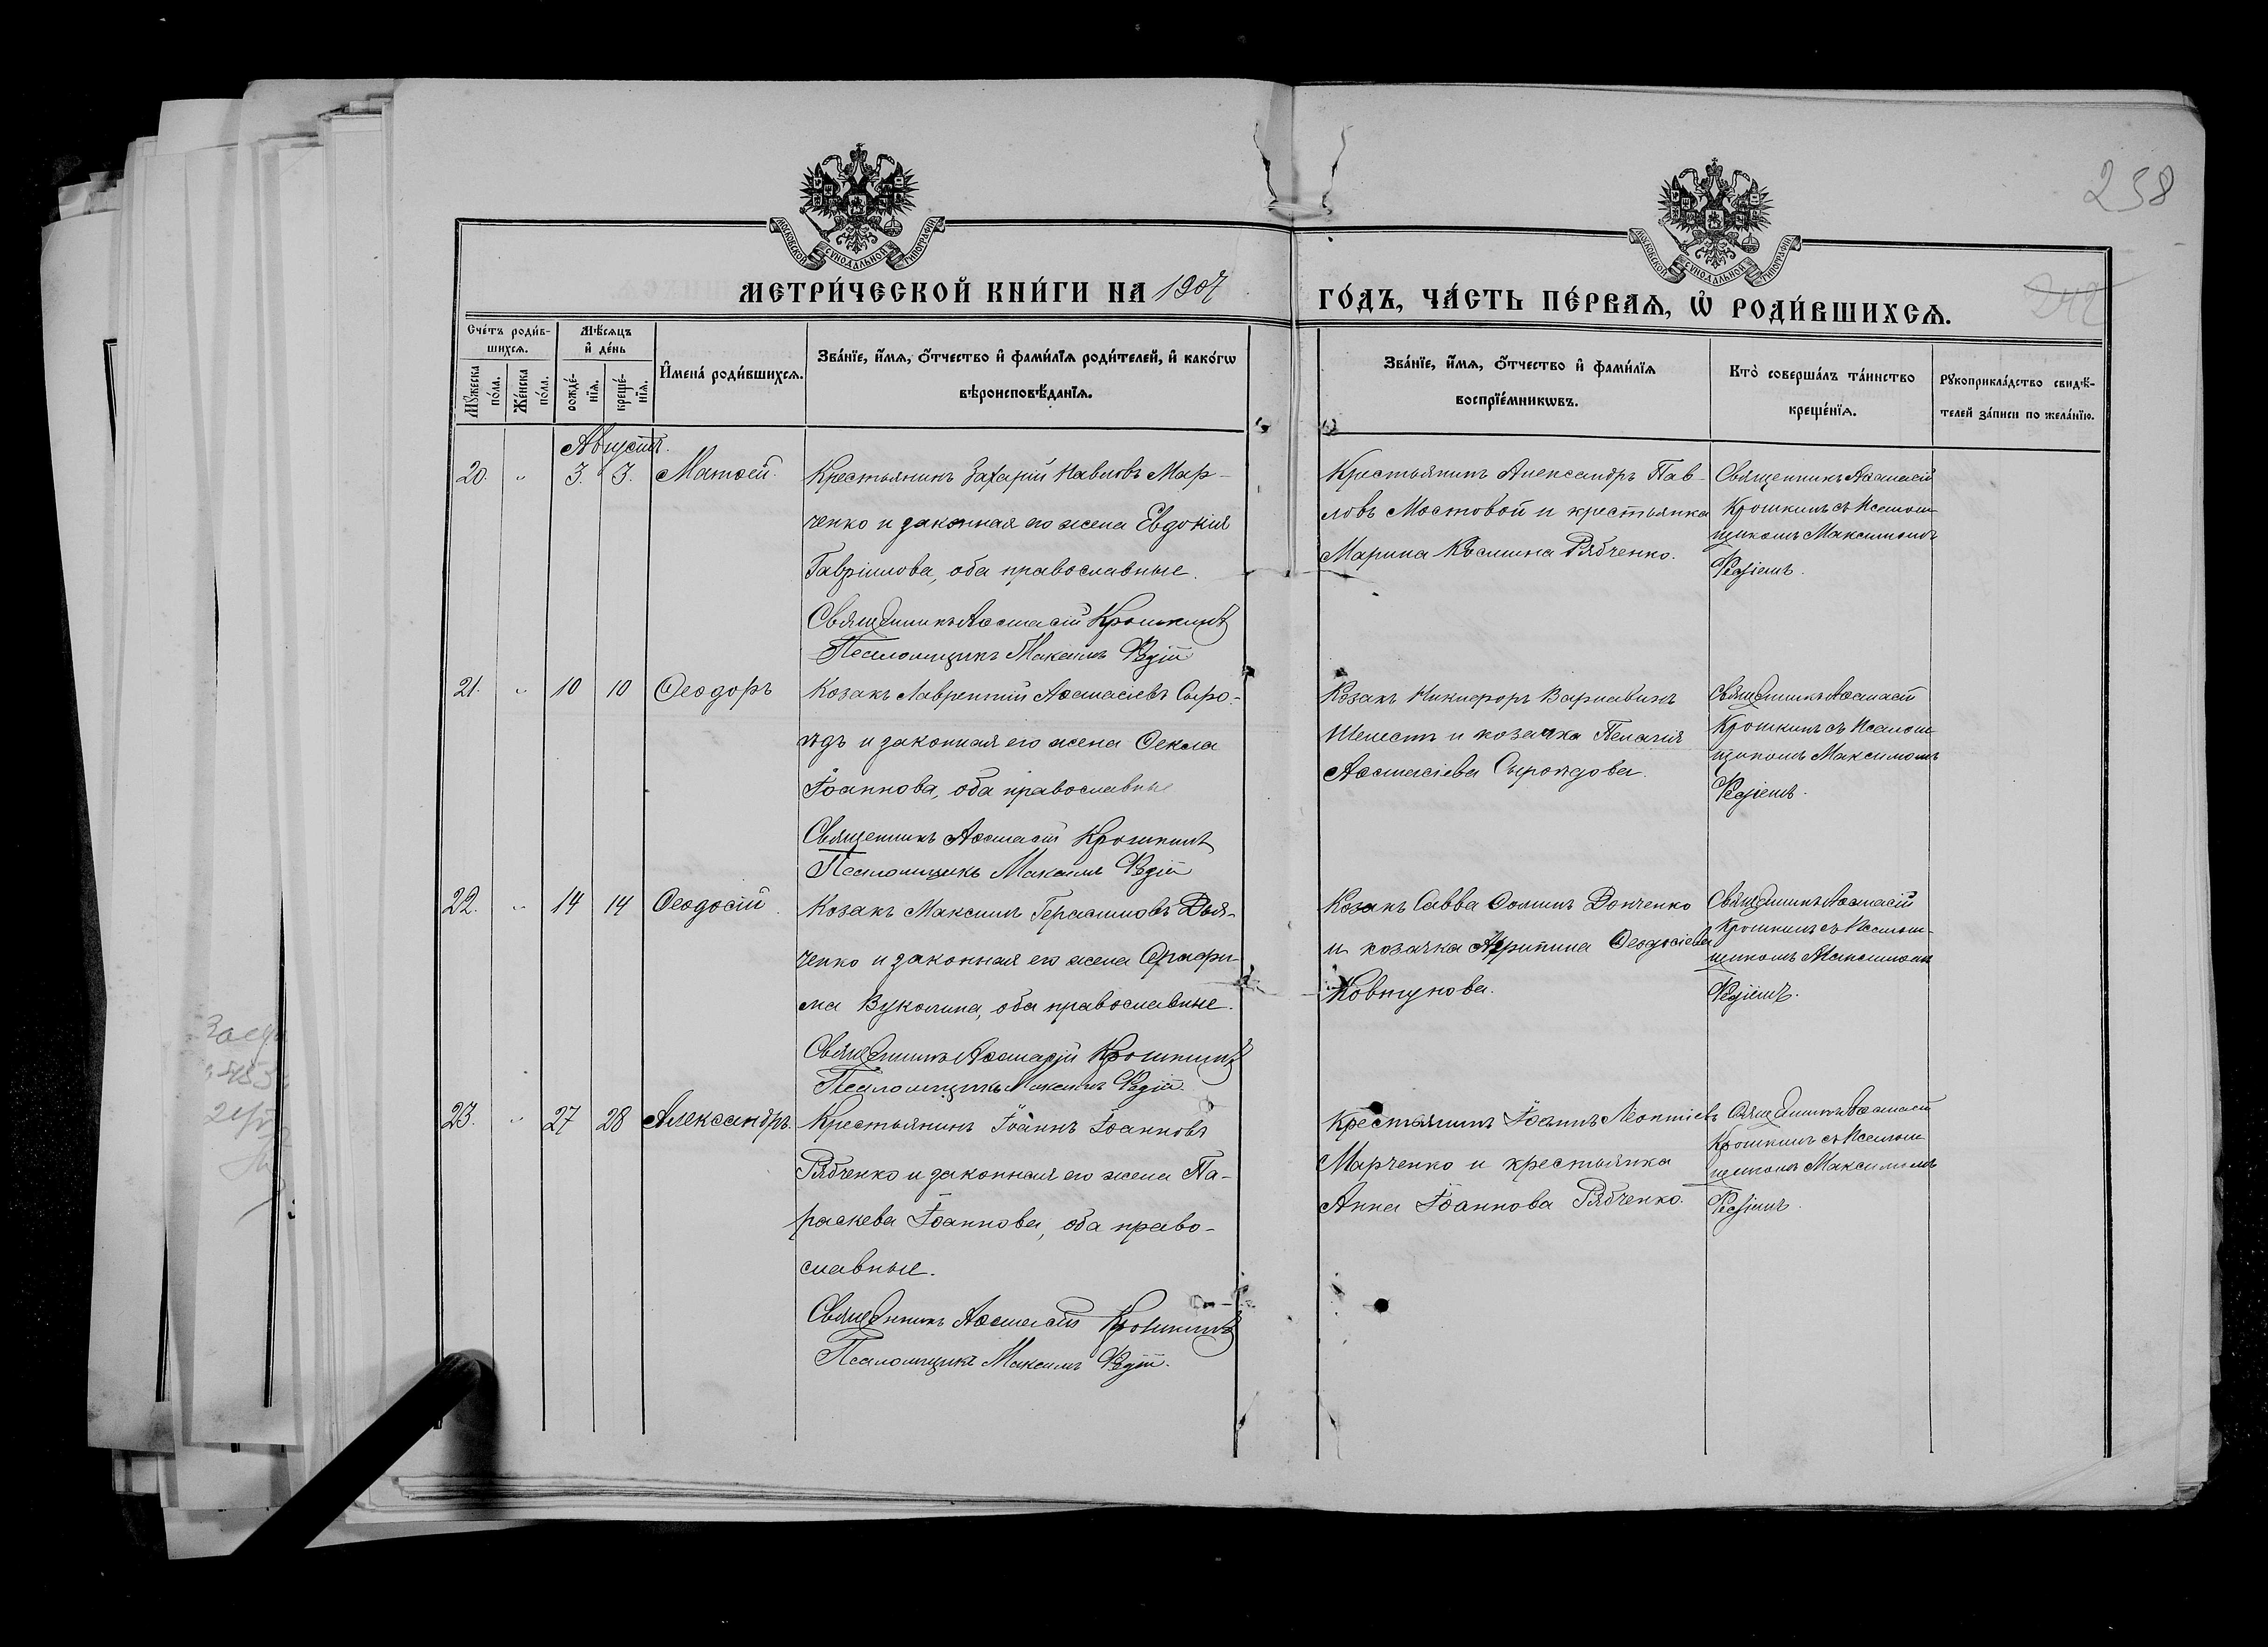 258
242
МОСКОВСКОЙ СУНОДАЛЬНОЙ ТИПОГРАФІИ
МОСКОВСКОЙ СУНОДАЛЬНОЙ ТИПОГРАФІИ
МЕТРИ́ЧЕСКОЙ КНИ́ГИ НА 1907
ГО́ДЪ, ЧА́СТЬ ПЕ́РВАЯ, Ѡ РОДИ́ВШИХСЯ.
Сче́тъ роди́в-
шихся.
Му́жеска по́ла.
Же́нска по́ла.
Мѣ́сяцъ
и де́нь
рожде́-
нія.
креще́-
нія.
Имена́ роди́вшихся.
Зва́ніе, и́мя, о́тчество и фами́лія роди́телей, и како́гѡ
вѣроисповѣ́данія.
Зва́ніе, и́мя, о́тчество и фами́лія
воспріе́мникѡвъ.
Кто̀ соверша́лъ та́инство
креще́нія.
Рукоприкла́дство свидѣ́-
телей за́писи по жела́нію.
Августъ.
20. „ 3. 3. Матѳей.
Крестьянинъ Захарій Павловъ Мар-
ченко и законная его жена Евдокія
Гавріилова, оба православные.
Священникъ Аѳанасій Крошкинъ
Псаломщикъ Максимъ Редій
Крестьянинъ Александръ Пав-
ловъ Мостовой и крестьянка
Марина Косьмина Рябченко.
Священникъ Аѳанасій
Крошкинъ съ Псалом-
щикомъ Максимомъ
Редіемъ.
21. „ 10 10 Ѳеодоръ
Козакъ Лаврентій Аѳанасіевъ Сыро-
ѣдъ и законная его жена Ѳекла
Іоаннова, оба православные
Священникъ Аѳанасій Крошкинъ
Псаломщикъ Максимъ Редій
Козакъ Никифоръ Варнавинъ
Шелестъ и козачка Пелагія
Аѳанасіева Сыроѣдова.
Священникъ Аѳанасій
Крошкинъ съ Псалом-
щикомъ Максимомъ
Редіемъ.
22. „ 14 14 Ѳеодосій.
Козакъ Максимъ Герасимовъ Дья-
ченко и законная его жена Серафи-
ма Вуколина, оба православные.
Священникъ Аѳанасій Крошкинъ
Псаломщикъ Максимъ Редій.
Козакъ Савва Ѳоминъ Донченко
и козачка Агрипина Ѳеодосіева
Ковтунова.
Священникъ Аѳанасій
Крошкинъ съ Псалом-
щикомъ Максимомъ
Редіемъ.
23. „ 27 28 Александръ.
Крестьянинъ Іоаннъ Іоанновъ
Рябченко и законная его жена Па-
раскева Іоаннова, оба право-
славные.
Священникъ Аѳанасій Крошкинъ
Псаломщикъ Максимъ Редій.
Крестьянинъ Іоаннъ Леонтіевъ
Марченко и крестьянка
Анна Іоаннова Рябченко.
Священникъ Аѳанасій
Крошкинъ съ Псалом-
щикомъ Максимомъ
Редіемъ.